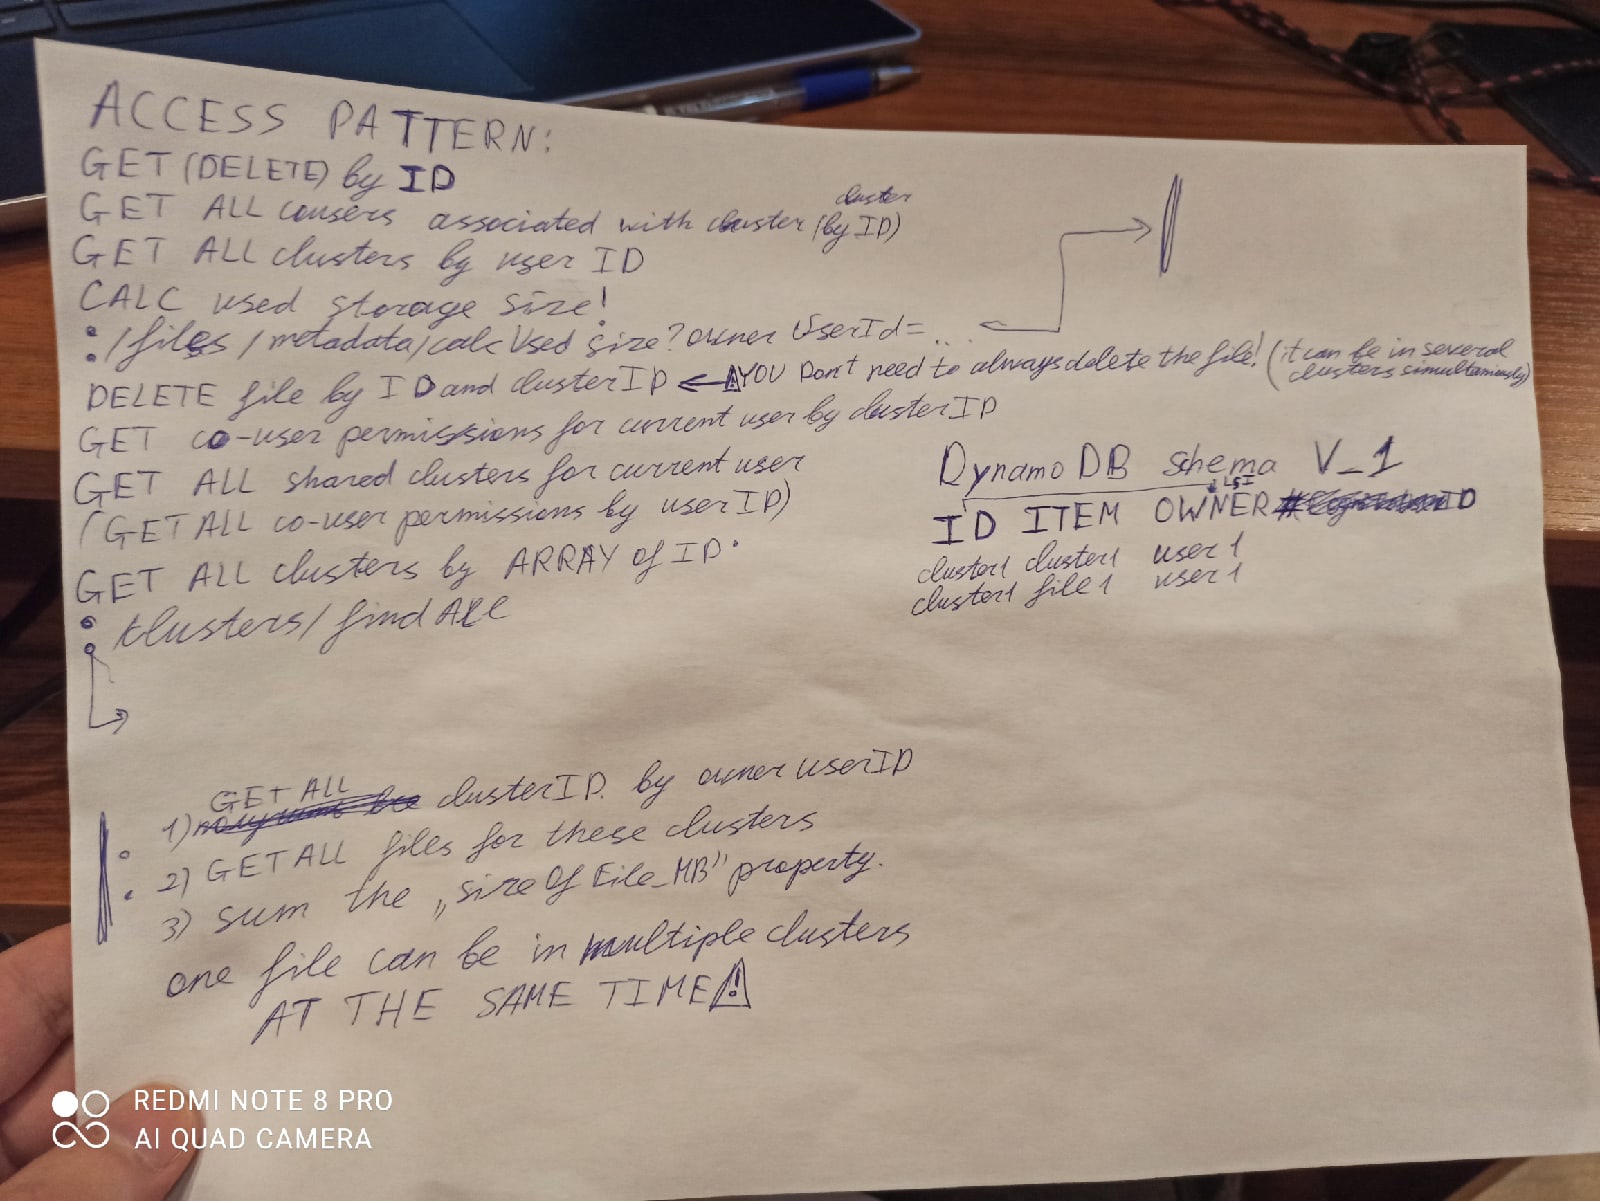 ACCESS PATTERN:
GET (DELETE) by ID
GET ALL cousers associated with cluster (by cluster ID)
GET ALL clusters by user ID
CALC used storage size!
: /files/metadata/calcUsed size? owner UserId=...
DELETE file by ID and clusterID ← ⚠ YOU Don't need to always delete the file! (it can be in several
clusters simultaniously)
GET co-user permissions for current user by clusterID
GET ALL shared clusters for current user
(GET ALL co-user permissions by userID)
GET ALL clusters by ARRAY of ID:
clusters/findAll
Dynamo DB shema V_1
LSI
ID ITEM OWNER
cluster1 cluster1 user1
cluster1 file1 user1
1) GET ALL clusterID. by owner userID
2) GET ALL files for these clusters
3) sum the „size Of File_MB" property.
one file can be in multiple clusters
AT THE SAME TIME ⚠
REDMI NOTE 8 PRO
AI QUAD CAMERA